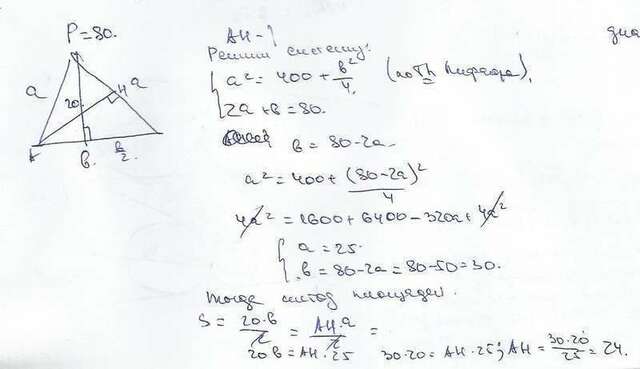 P=80.
a
20
H
a
A
в.
в/2
AH-?
Решим систему:
{ a² = 400 + в²/4 (по Th Пифагора),
2a + в = 80.
в = 80-2a
a² = 400 + (80-2a)²/4
4a² = 1600 + 6400 - 320a + 4a²
{ a = 25.
в = 80-2a = 80-50 = 30.
Тогда метод площадей.
S = 20·в/2 = AH·a/2 =
20в = AH·25 30·20 = AH·25; AH = 30·20/25 = 24.